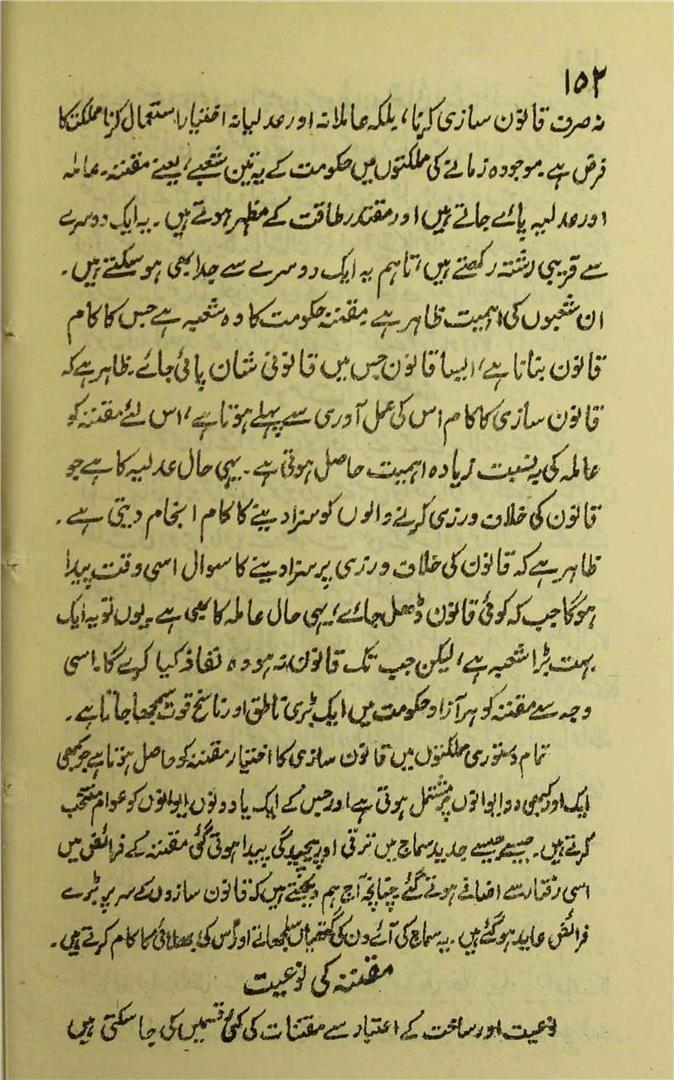 ۱۵۲
نہ صرف قانون سازی کرنا، بلکہ عاملانہ اور عدلیانہ اختیار استعمال کرنا مملکت کا
فرض ہے۔ موجودہ زمانے کی مملکتوں میں حکومت کے یہ تین شعبے، یعنے مقننہ۔ عاملہ
اور عدلیہ پائے جاتے ہیں اور مقتدر طاقت کے مظہر ہوتے ہیں۔ یہ ایک دوسرے
سے قریبی رشتہ رکھتے ہیں، تاہم یہ ایک دوسرے سے جدا بھی ہو سکتے ہیں۔
ان شعبوں کی اہمیت ظاہر ہے۔ مقننہ حکومت کا وہ شعبہ ہے جس کا کام
قانون بنانا ہے، ایسا قانون جس میں قانونی شان پائی جائے۔ ظاہر ہے کہ
قانون سازی کا کام اس کی عمل آوری سے پہلے ہوتا ہے، اس لئے مقننہ کو
عاملہ کی بہ نسبت زیادہ اہمیت حاصل ہوتی ہے۔ یہی حال عدلیہ کا ہے جو
قانون کی خلاف ورزی کرنے والوں کو سزا دینے کا کام انجام دیتی ہے۔
ظاہر ہے کہ قانون کی خلاف ورزی پر سزا دینے کا سوال اسی وقت پیدا
ہوگا جب کہ کوئی قانون ڈھل جائے، یہی حال عاملہ کا بھی ہے۔ یوں تو یہ ایک
بہت بڑا شعبہ ہے، لیکن جب تک قانون نہ ہو وہ نفاذ کیا کرے گا۔ اسی
وجہ سے مقننہ کو ہر آزاد حکومت میں ایک بڑی ناطق اور ناسخ قوت سمجھا جاتا ہے۔
تمام دستوری مملکتوں میں قانون سازی کا اختیار مقننہ کو حاصل ہوتا ہے جو کبھی
ایک اور کبھی دو ایوانوں پر مشتمل ہوتی ہے اور جس کے ایک یا دونوں ایوانوں کو عوام منتخب
کرتے ہیں۔ جیسے جیسے جدید سماج میں ترقی اور پیچیدگی پیدا ہوتی گئی مقننہ کے فرائض میں
اسی رفتار سے اضافے ہوتے گئے چنانچہ آج ہم دیکھتے ہیں کہ قانون سازوں کے سر پر بڑے
فرائض عاید ہو گئے ہیں۔ یہ سماج کی آئے دن کی گتھیاں سلجھانے اور اُس کی بھلائی کا کام کرتے ہیں۔
مقننہ کی نوعیت
نوعیت اور ساخت کے اعتبار سے مقننات کی کئی قسمیں کی جا سکتی ہیں